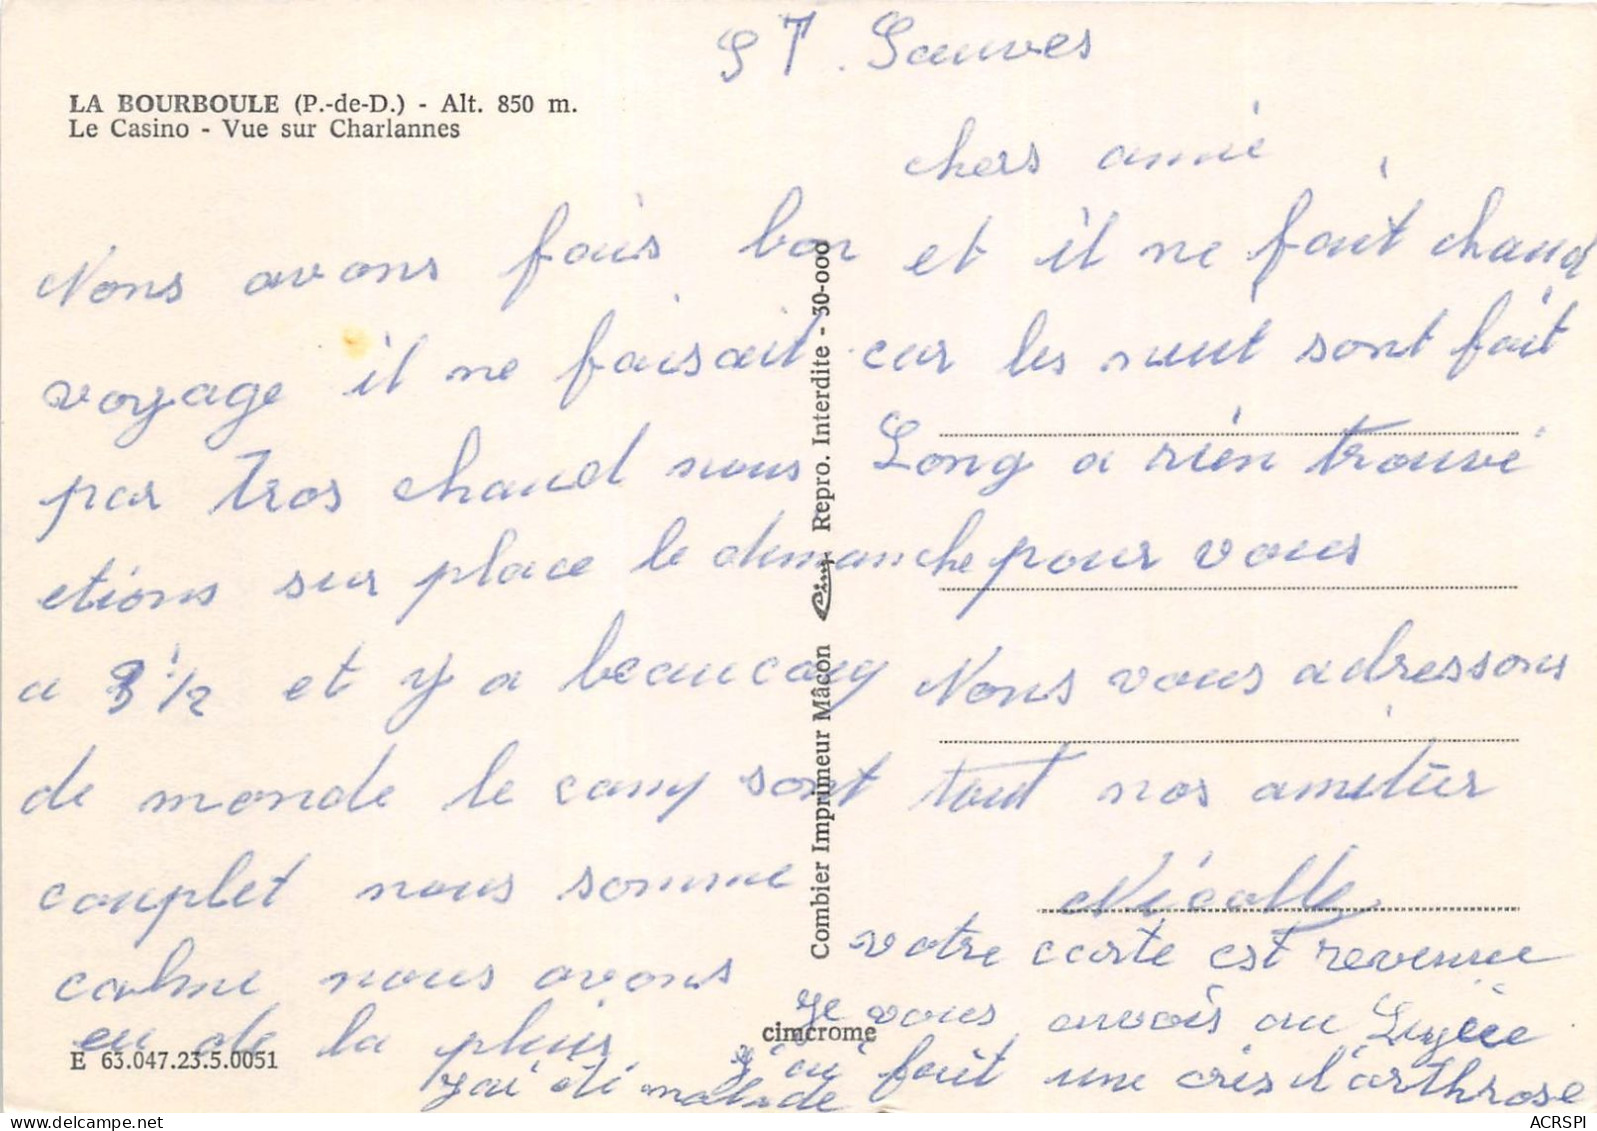 ST. Sauves
LA BOURBOULE (P.-de-D.) - Alt. 850 m.
Le Casino - Vue sur Charlannes
chers amie
Nous avons fais bon
voyage il ne faisait
par tros chaud nous
etions sur place le dimanche
a 3 1/2 et y a beaucoup
de monde le camp sont
couplet nous somme
calme nous avons
eu de la pluis
et il ne fait chaud
car les nuit sont fait
Long a rien trouvé
pour vous
Nous vous adressons
tout nos amitier
Nicolle
votre carte est revenue
je vous avais au
j'ai fait une cris d'arthrose
j'ai été malade
Combier Imprimeur Mâcon Cim Repro. Interdite - 30-000
cimcrome
E 63.047.23.5.0051
ACRSPI